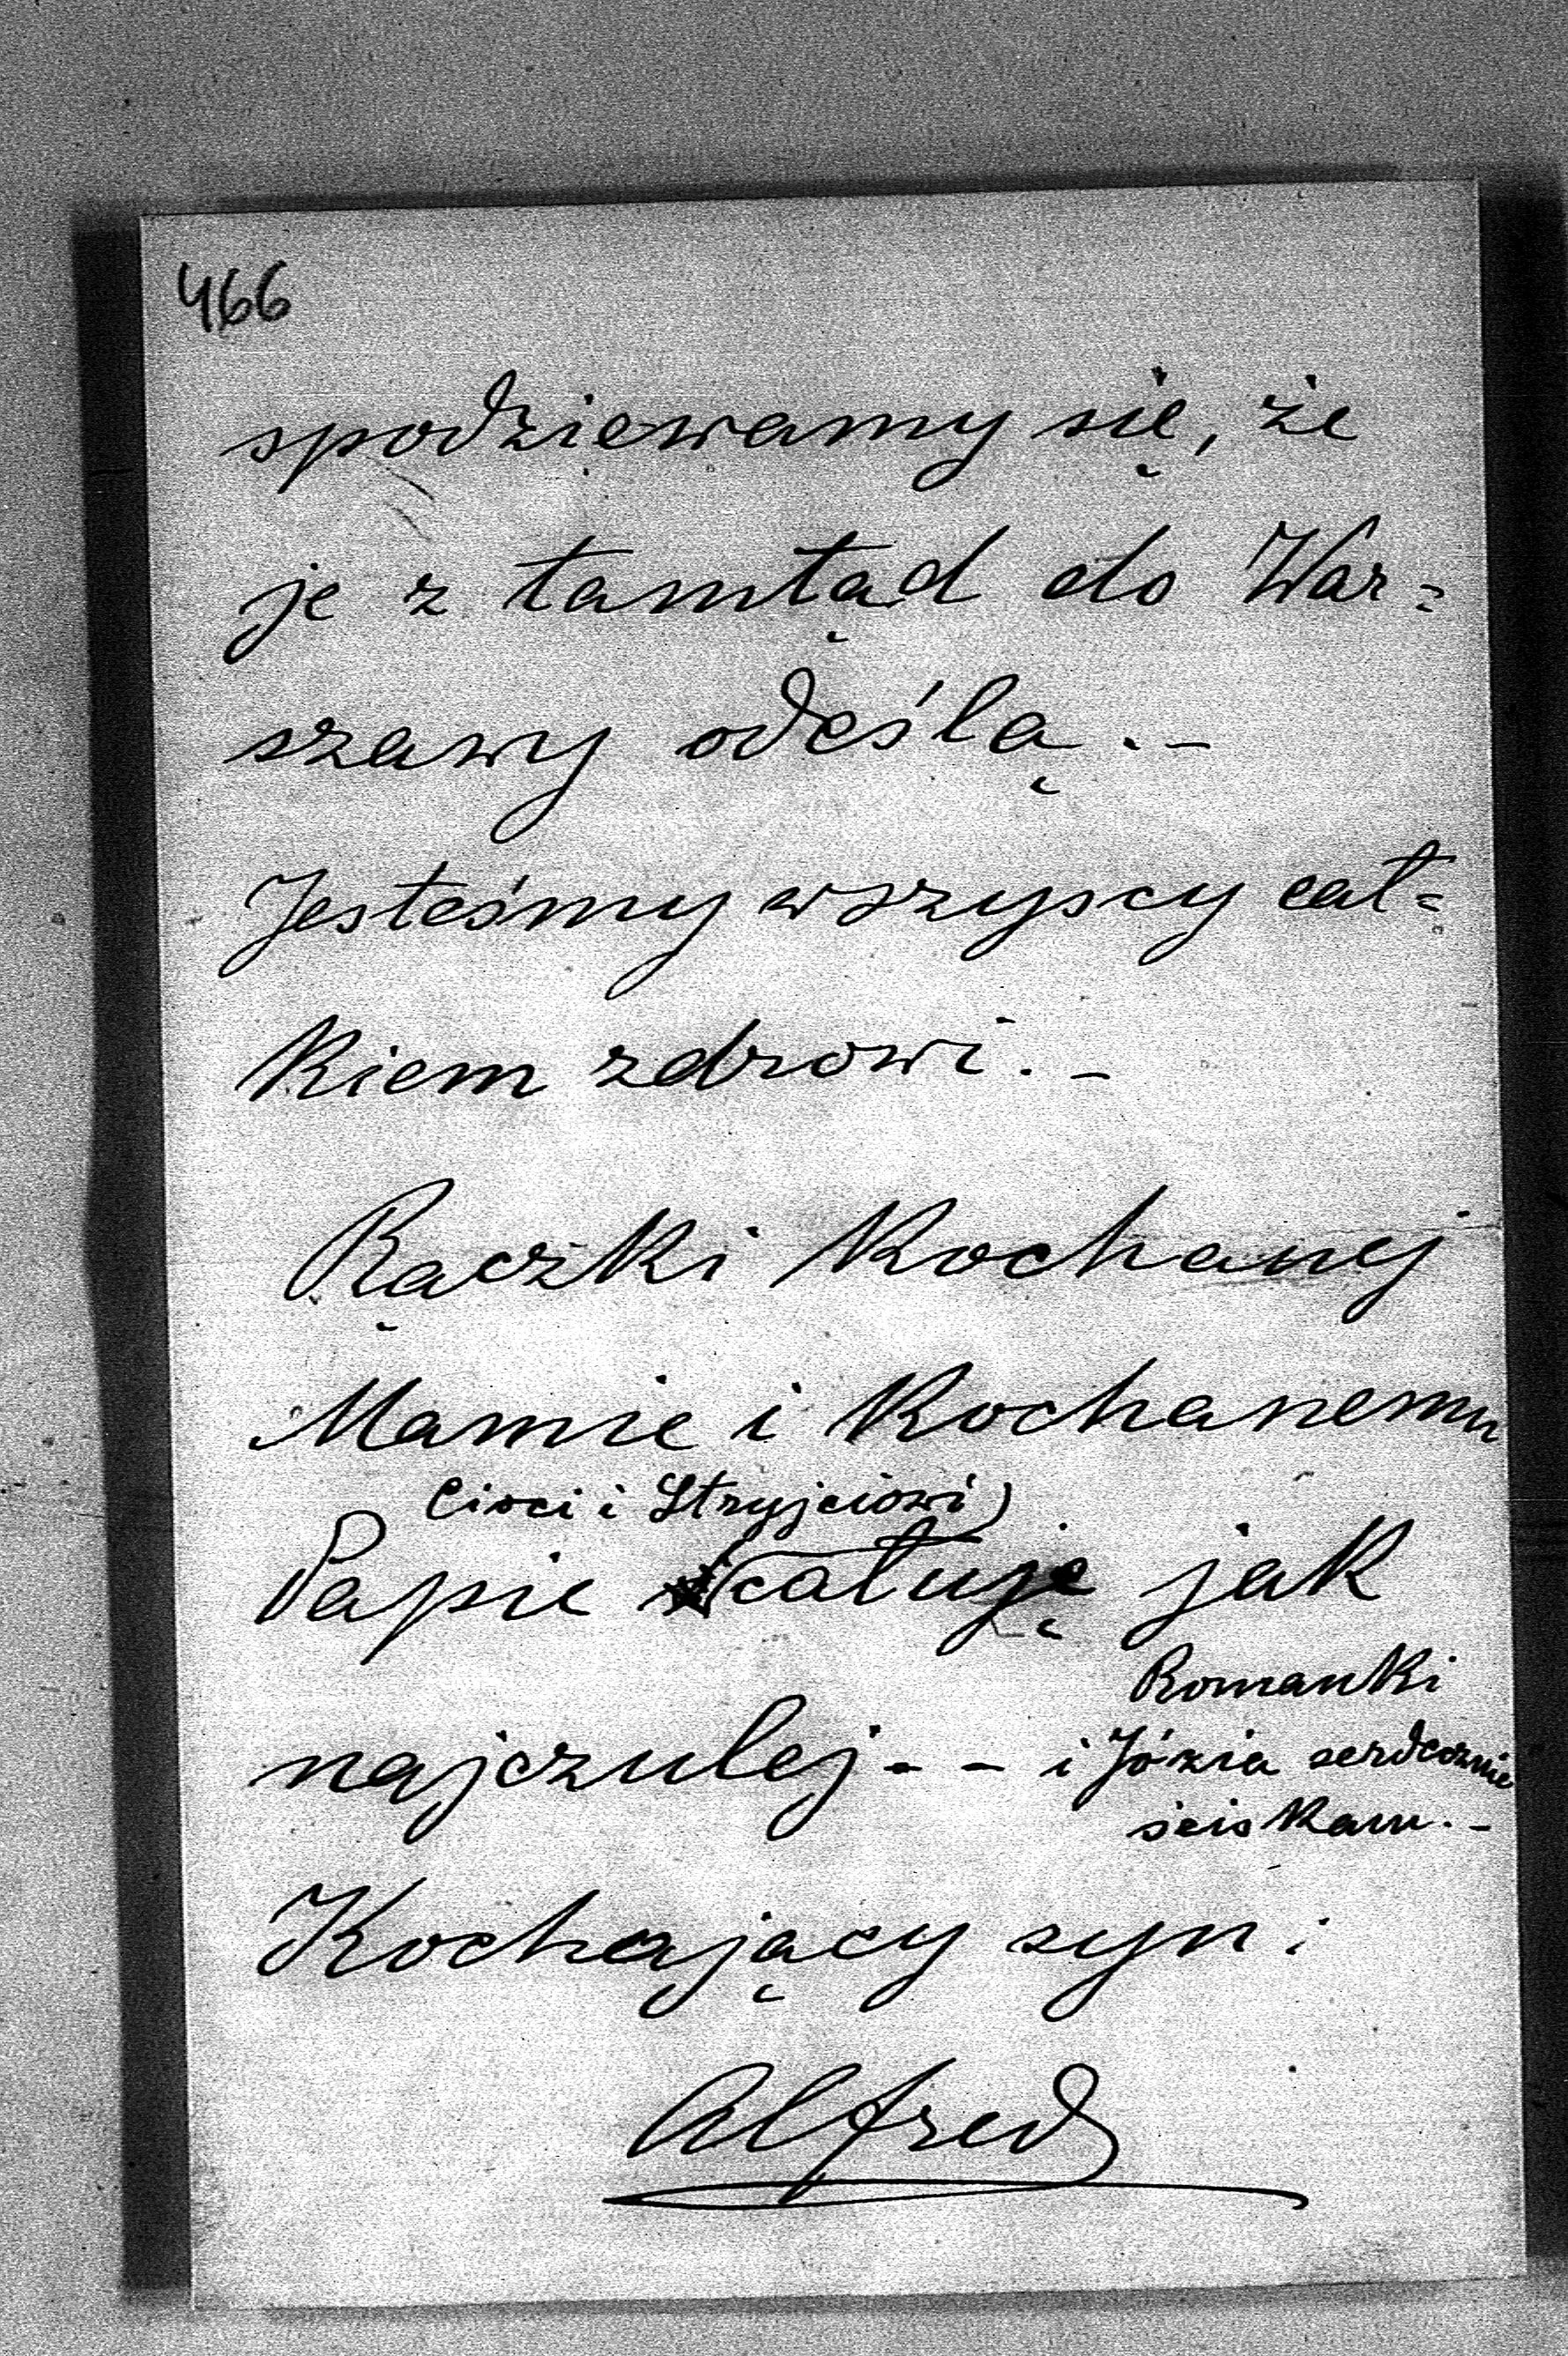 466
spodziewamy się, że
je z tamtąd do War=
szawy odeślą. -
Jesteśmy wszyscy cał=
kiem zdrowi. -
Rączki kochanej
Mamie i kochanemu
Cioci i Stryjciowi
Papie całuję jak
Romanki
najczulej - - i Józia serdecznie
ściskam. -
Kochający syn:
Alfred